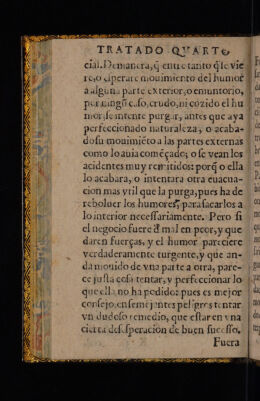 TRATADO QVARTO
cial. Demanera, q̃ entretanto q̃ se vie
re, o esperare mouimiento del humor
a alguna parte exterior, o emuntorio,
por ningũ caso, crudo, ni cozido el hu
mor se intente purgar, antes que aya
perfeccionado naturaleza, o acaba-
do su mouimiẽto a las partes externas
como lo auia comẽçado; o se vean los
acidentes muy remitidos: porq̃ o ella
lo acabara, o intentara otra euacua-
cion mas vtil que la purga, pues ha de
reboluer los humores, para sacarlos a
lo interior necessariamente. Pero si
el negocio fuere đ mal en peor, y que
daren fuerças, y el humor pareciere
verdaderamente turgente, y que an-
da mouido de vna parte a otra, pare-
ce justa cosa tentar, y perfeccionar lo
que ella no ha podido: pues es mejor
consejo en semejantes peligros tentar
vn dudoso remedio, que estar en vna
cierta desesperacion de buen sucesso.
Fuera